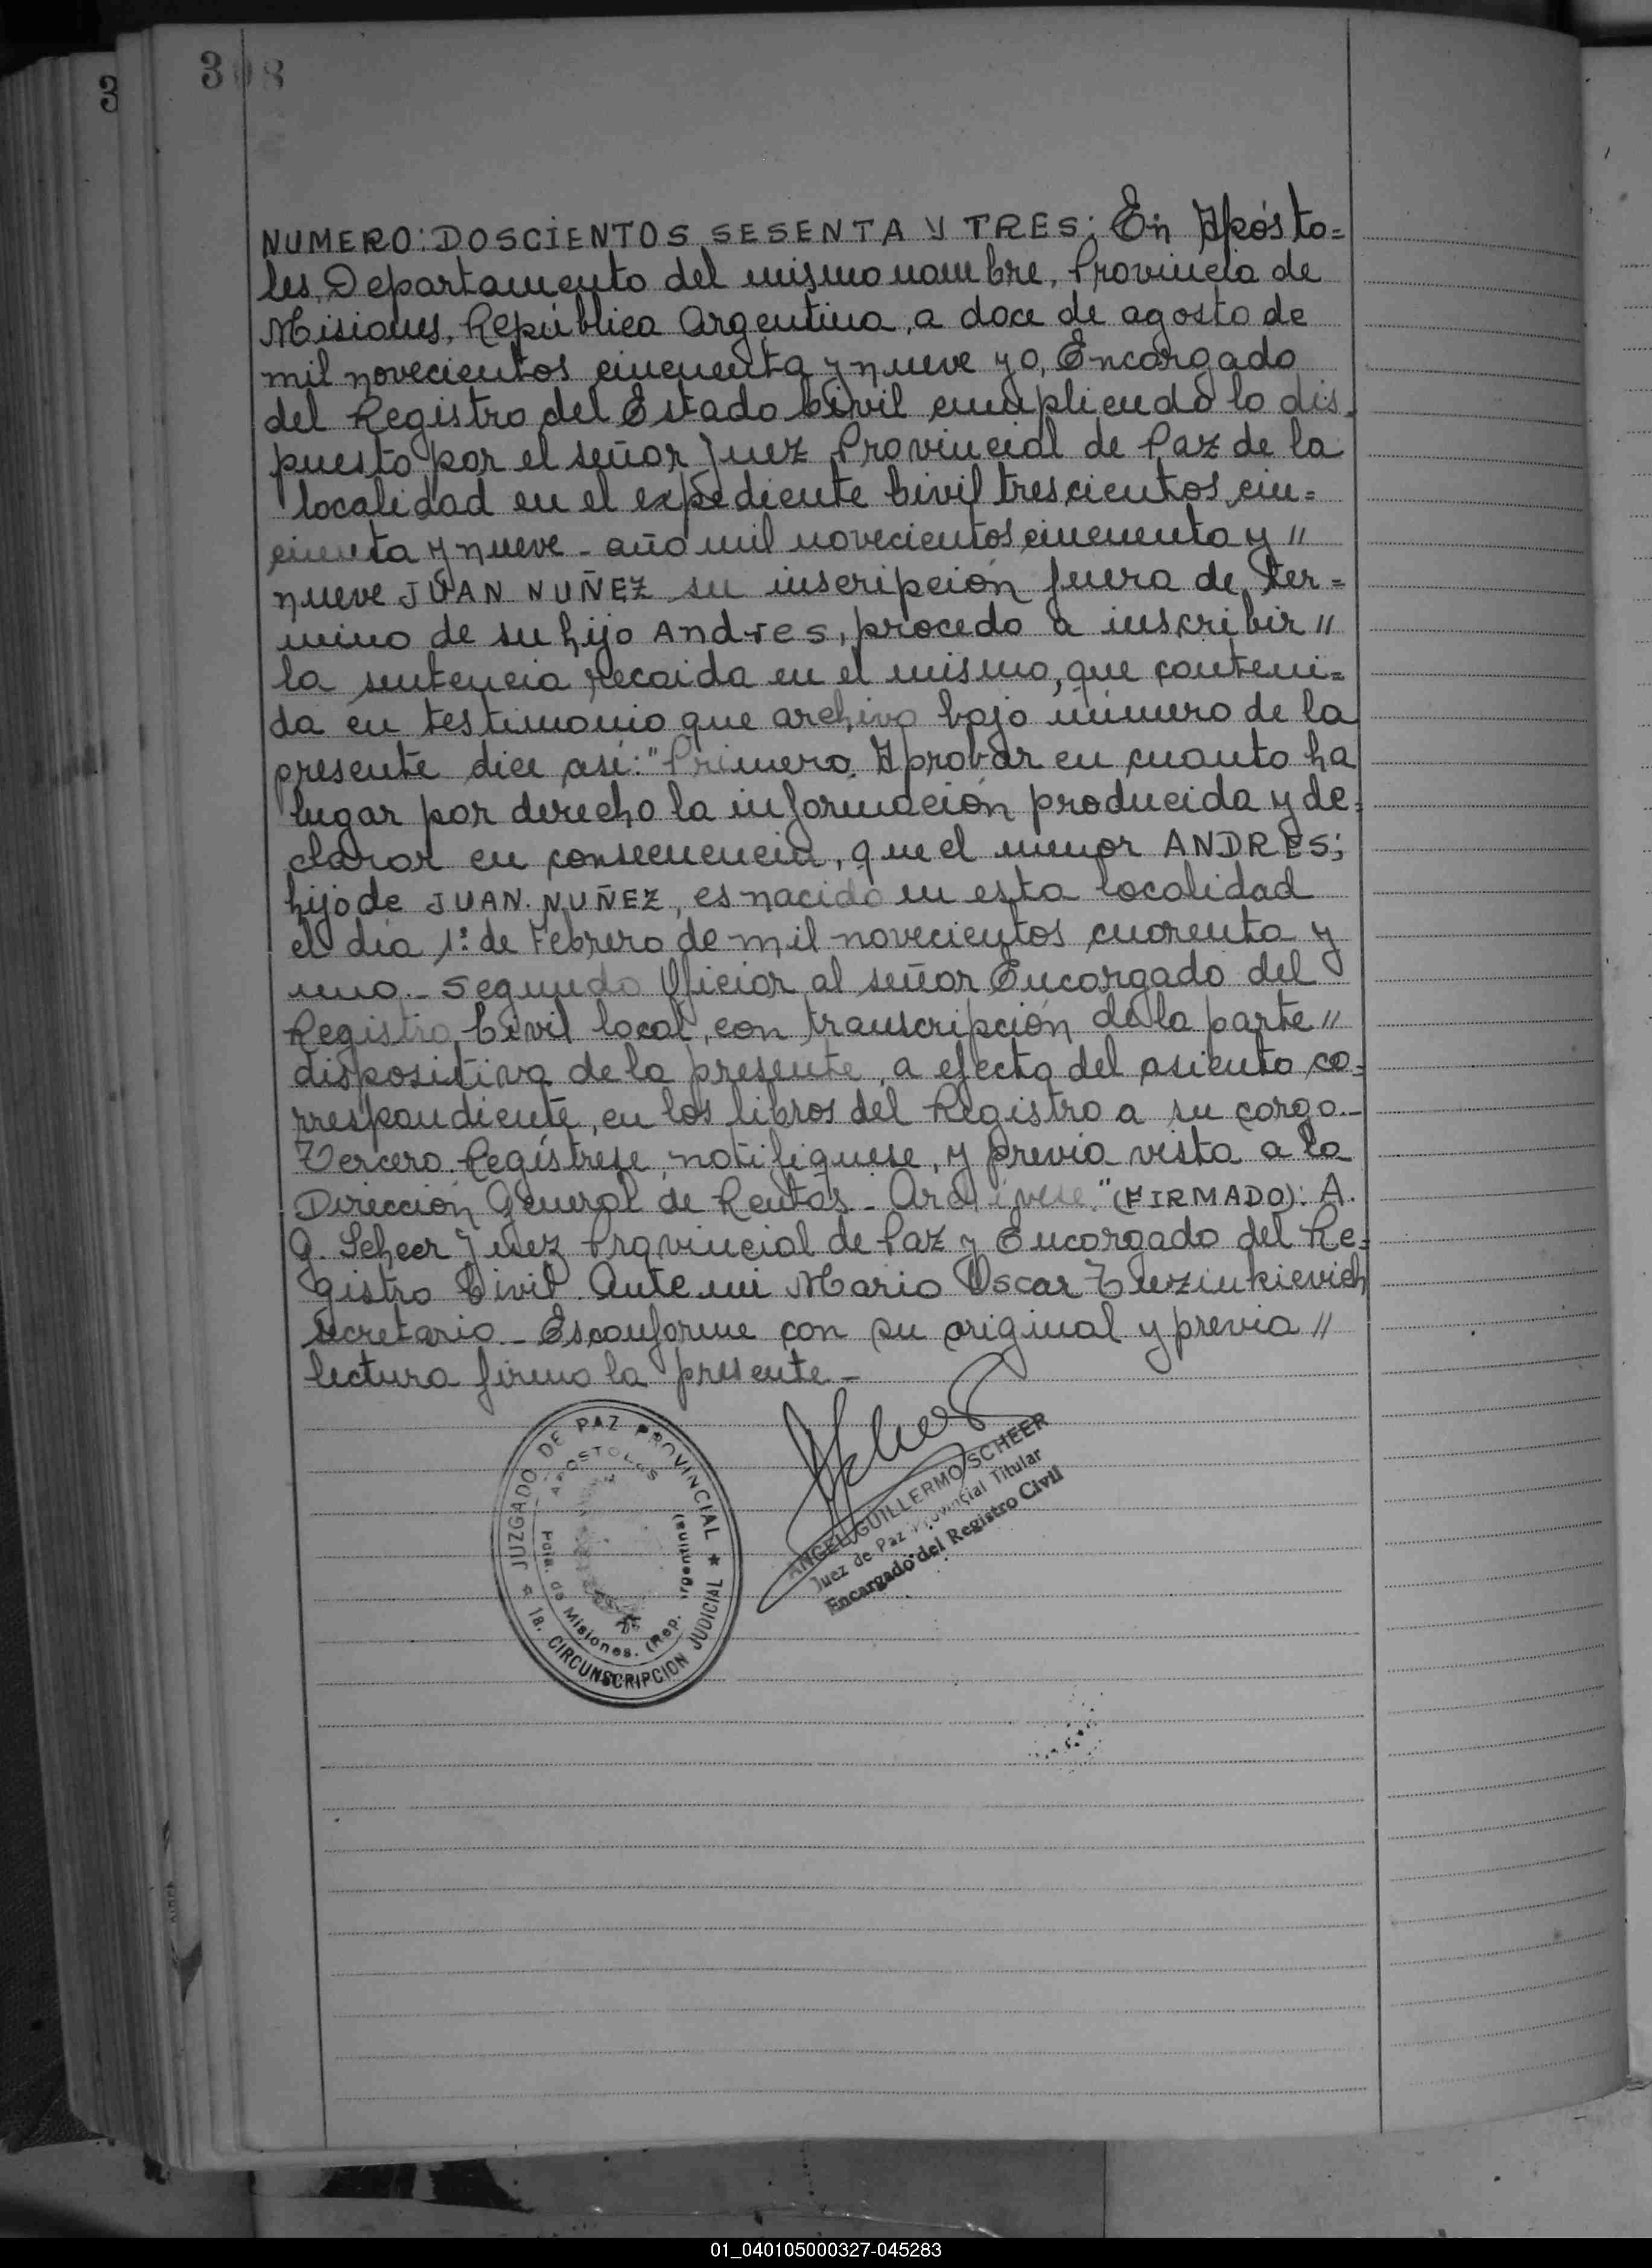 308
3
NUMERO: DOSCIENTOS SESENTA Y TRES: En Apósto=
les, Departamento del mismo nombre, Provincia de
Misiones, República Argentina, a doce de agosto de
mil novecientos cincuenta y nueve yo, Encargado
del Registro del Estado Civil cumpliendo lo dis-
puesto por el señor Juez Provincial de Paz de la
localidad en el expediente Civil trescientos cin=
cuenta y nueve - año mil novecientos cincuenta y //
nueve JUAN NUÑEZ su inscripción fuera de ter=
mino de su hijo Andres, procedo a inscribir //
la sentencia recaida en el mismo, que conteni=
da en testimonio que archivo bajo número de la
presente dice así: "Primero. Aprobar en cuanto ha
lugar por derecho la información producida y de=
clarar en consecuencia, que el menor ANDRES;
hijo de JUAN NUÑEZ, es nacido en esta localidad
el día 1º de Febrero de mil novecientos cuarenta y
uno.- Segundo Oficiar al señor Encargado del
Registro Civil local, con transcripción de la parte //
dispositiva de la presente, a efecto del asiento co=
rrespondiente, en los libros del Registro a su cargo.-
Tercero. Regístrese, notifiquese, y previa vista a la
Dirección General de Rentas - Archivese." (FIRMADO): A.
G. Scheer Juez Provincial de Paz y Encargado del Re=
gistro Civil. Ante mi Mario Oscar Tuzinkievich
secretario - Es conforme con su original y previa //
lectura firmo la presente -
JUZGADO DE PAZ PROVINCIAL
APOSTOLES
Pcia. de Misiones. (Rep. Argentina)
1a. CIRCUNSCRIPCION JUDICIAL
ANGEL GUILLERMO SCHEER
Juez de Paz Provincial Titular
Encargado del Registro Civil
01_040105000327-045283